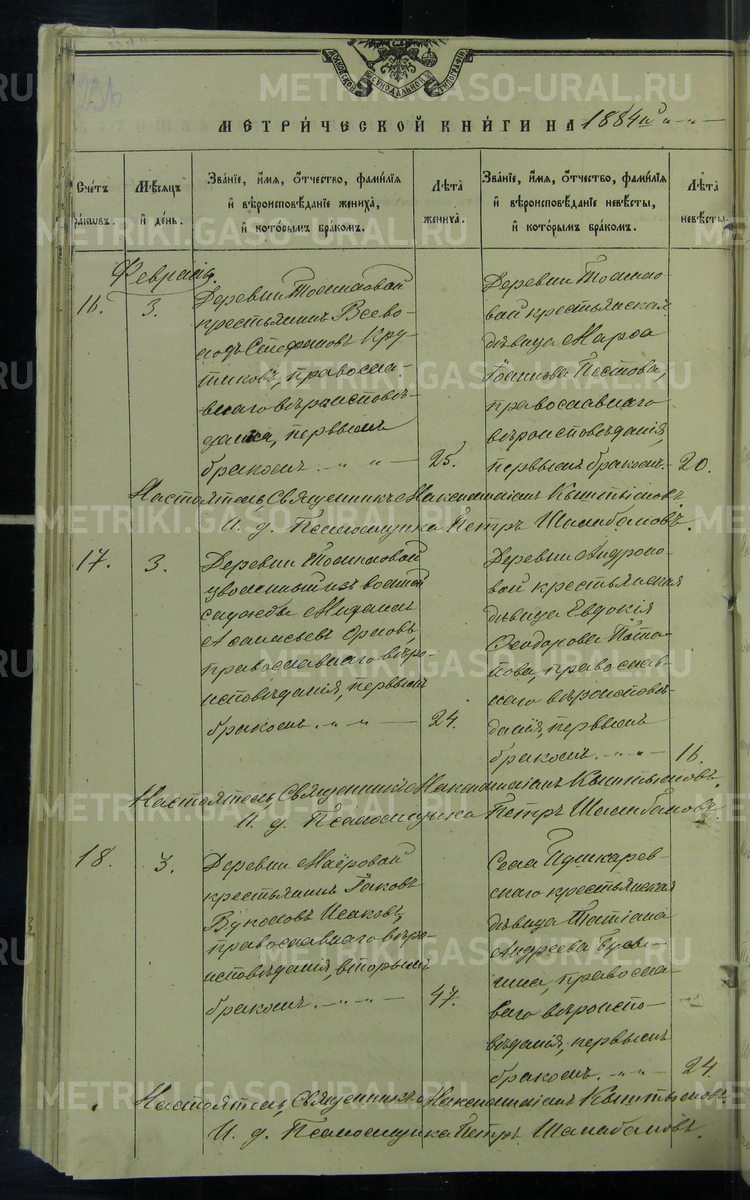 МОСКОВСКОЙ СѴНОДАЛЬНОЙ ТИПОГРАФІИ
МЕТРИ́ЧЕСКОЙ КНИ́ГИ НА 1884й
Сче́тъ бра́ковъ.
Мѣ́сяцъ и҆ де́нь.
Зва́нїе, и҆́мя, ѻ҆́тчество, фами́лїя и҆ вѣроисповѣ́данїе жениха̀, и҆ кото́рымъ бра́комъ.
Лѣ́та жениха̀.
Зва́нїе, и҆́мя, ѻ҆́тчество, фами́лїя и҆ вѣроисповѣ́данїе невѣ́сты, и҆ кото́рымъ бра́комъ.
Лѣ́та невѣ́сты.
Февраля.
16.
3.
Деревни
крестьянинъ Всево-
лодъ Стефановъ Кру-
тиковъ, правосла-
внаго вѣроисповѣ-
данія, первымъ
бракомъ. — 25.
Деревни
вой крестьянская
дѣвица Марѳа
Іоаннова Пестова,
православнаго
вѣроисповѣданія,
первымъ бракомъ. — 20.
Настоятель Священникъ Максимиліанъ
И. д. Псаломщика Петръ
17.
3.
Деревни
уволенный изъ военной
службы Михаилъ
Орловъ,
православнаго вѣро-
исповѣданія, первымъ
бракомъ. — 24.
Деревни Андроно-
вой крестьянская
дѣвица Евдокія
Ѳеодорова Пота-
пова, православ-
наго вѣроисповѣ-
данія, первымъ
бракомъ. — 16.
Настоятель Священникъ Максимиліанъ
И. д. Псаломщика Петръ
18.
3.
Деревни Маіровой
крестьянинъ Іаковъ
Вуколовъ Исаковъ,
православнаго вѣро-
исповѣданія, вторымъ
бракомъ. — 47.
Села Пушкарев-
скаго крестьянская
дѣвица Татіана
Андреева
правосла-
внаго вѣроиспо-
вѣданія, первымъ
бракомъ. — 24.
Настоятель Священникъ Максимиліанъ
И. д. Псаломщика Петръ
METRIKI.GASO-URAL.RU